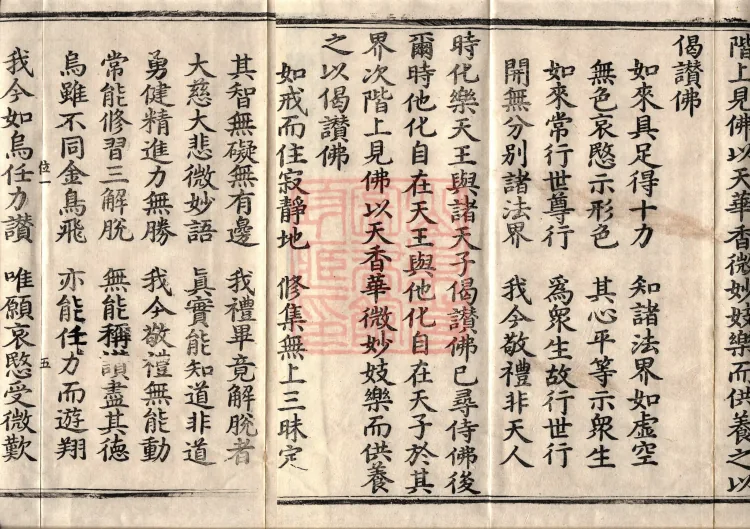 階上見佛以天華香微妙妓樂而供養之以
偈讃佛
如來具足得十力 知諸法界如虛空
無色哀愍示形色 其心平等示衆生
如來常行世尊行 爲衆生故行世行
開無分別諸法界 我今敬禮非天人
時化樂天王與諸天子偈讃佛已尋侍佛後
爾時他化自在天王與他化自在天子於其
界次階上見佛以天香華微妙妓樂而供養
之以偈讃佛
如戒而住寂靜地 修集無上三昧定
其智無礙無有邊 我禮畢竟解脫者
大慈大悲微妙語 眞實能知道非道
勇健精進力無勝 我今敬禮無能動
常能修習三解脫 無能稱讃盡其德
烏雖不同金鳥飛 亦能任力而遊翔
位一 五
我今如烏任力讃 唯願哀愍受微歎